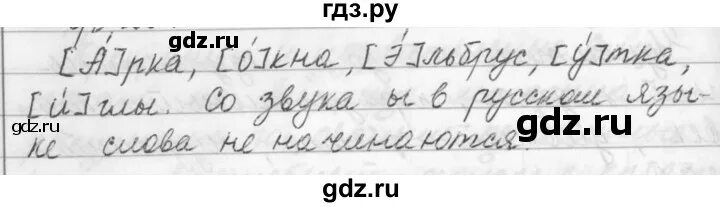 гдз.ру
gdz.ru
gdz.ru
[А́]рка, [о́]кна, [Э́]льбрус, [у́]тка,
[и́]глы. Со звука ы в русском язы-
ке слова не начинаются.
gdz.ru
gdz.ru
gdz.ru